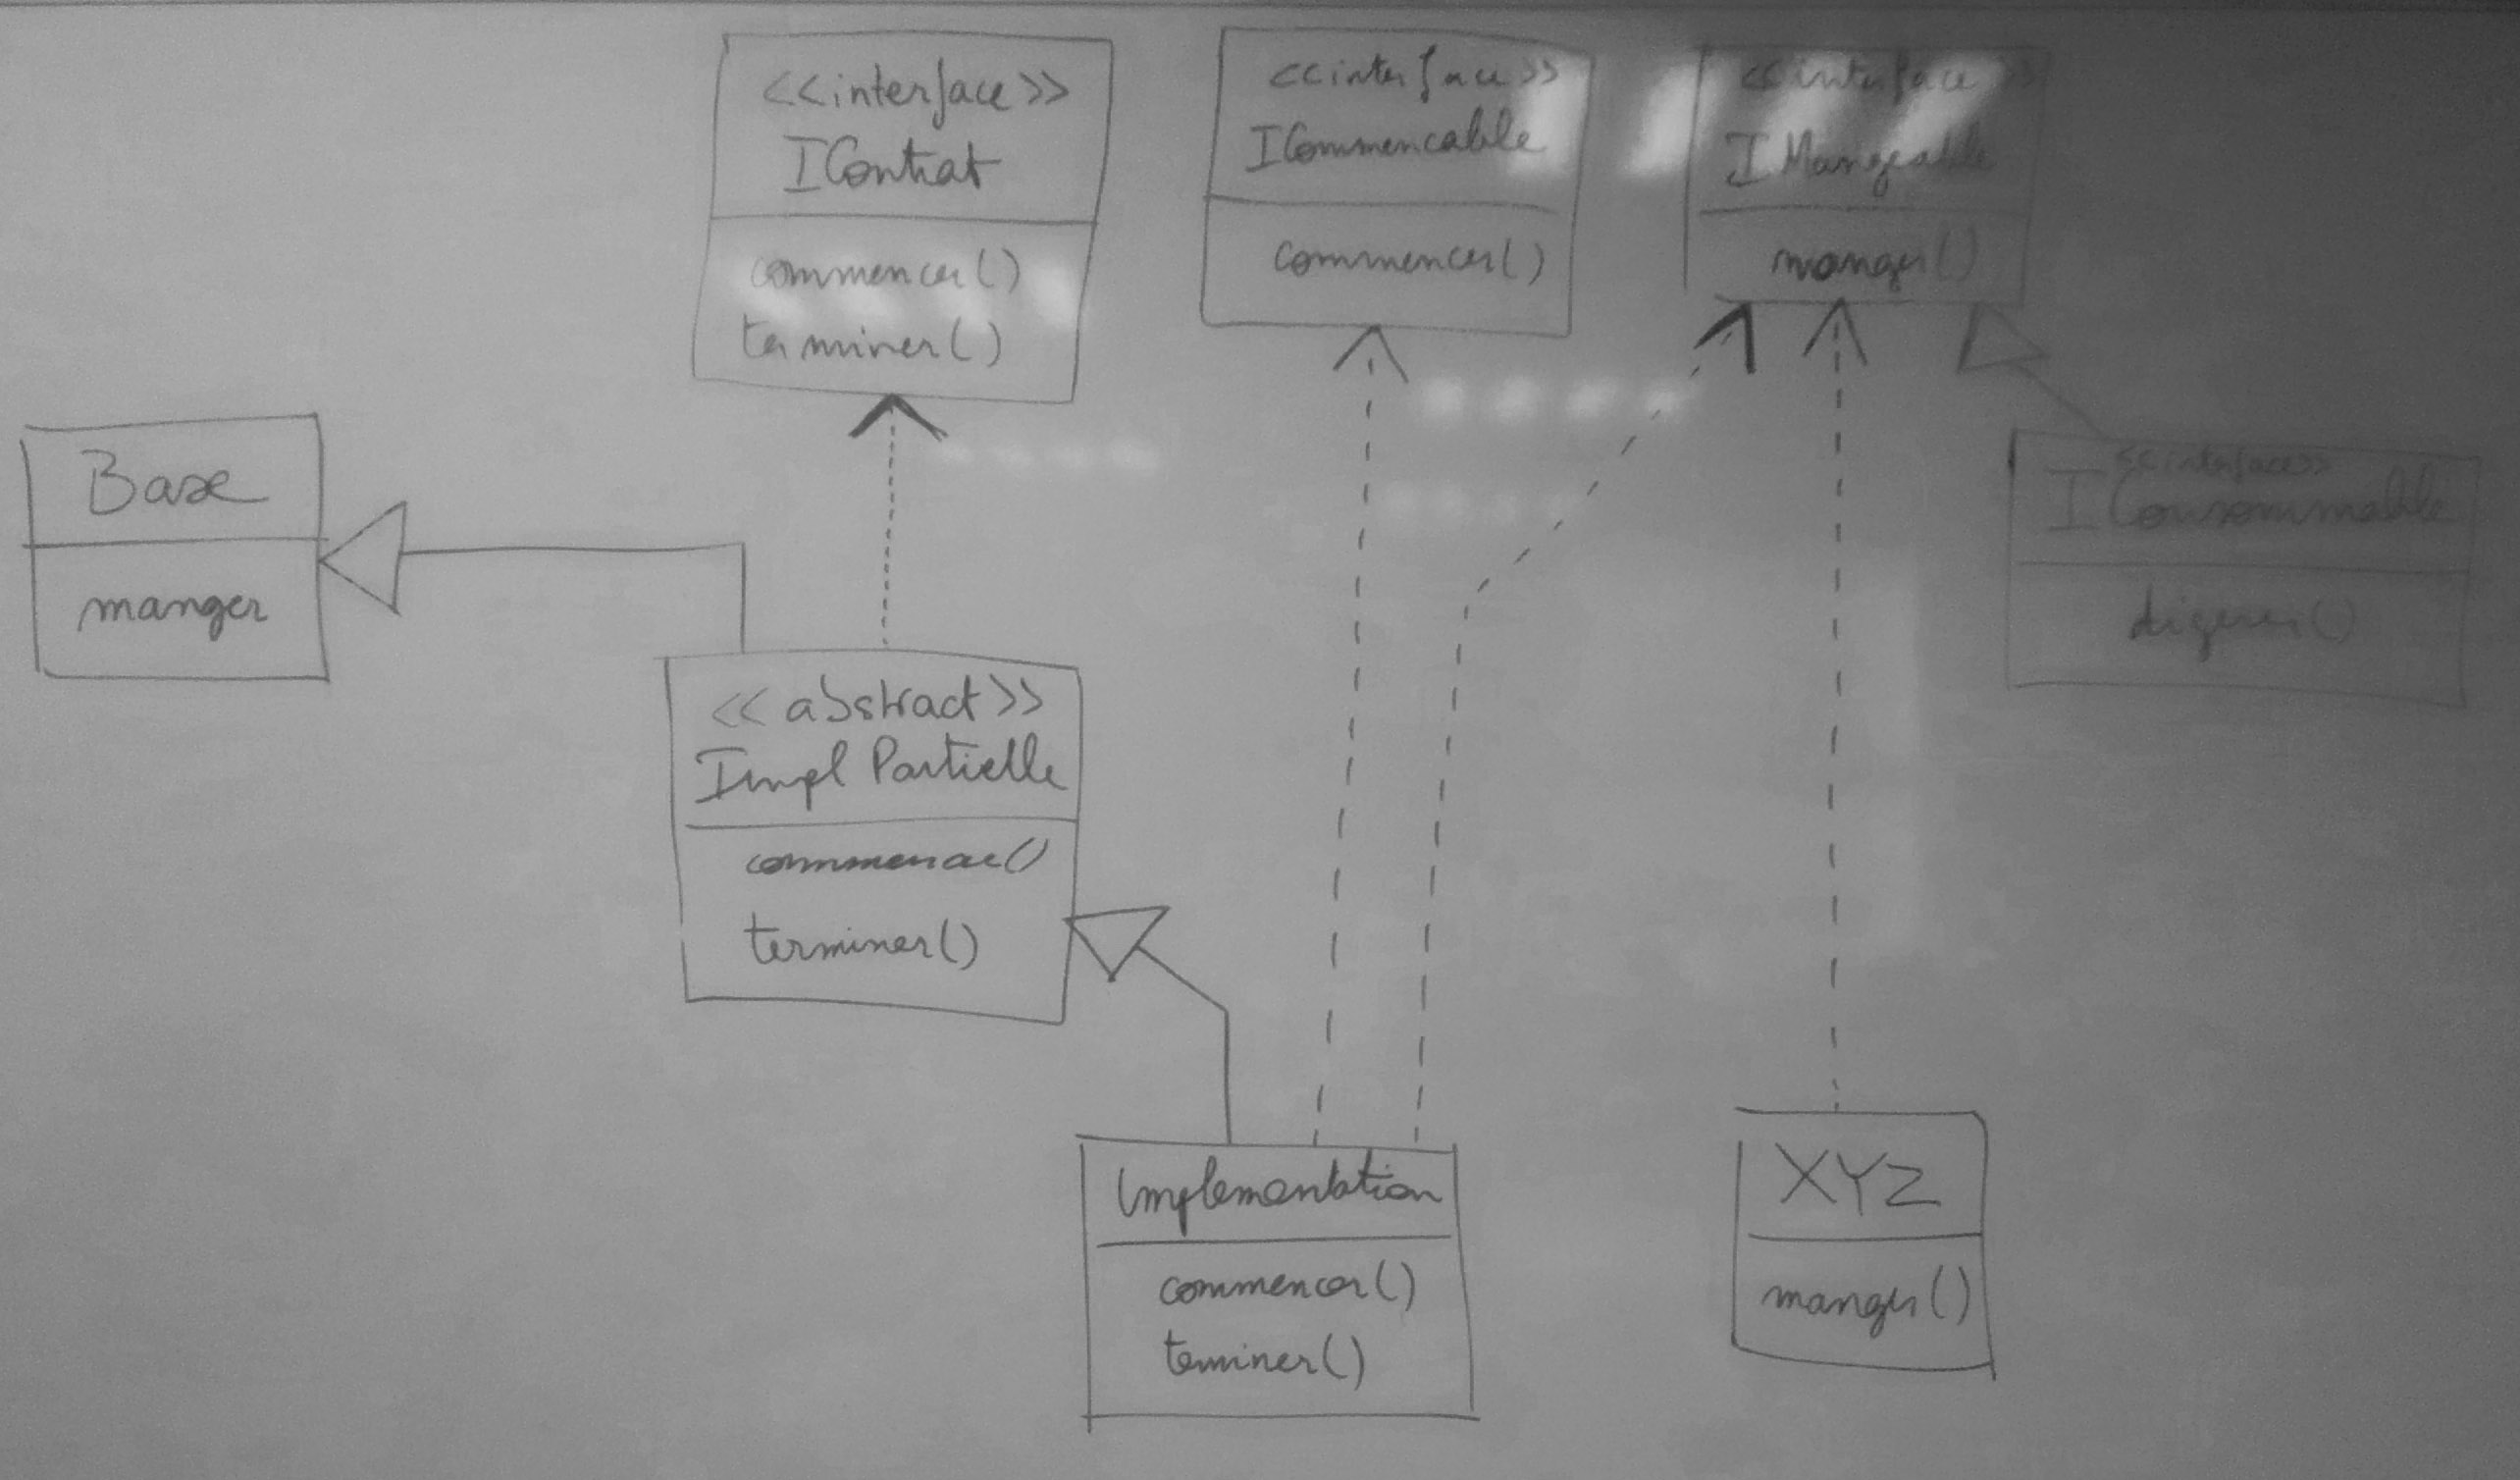 <<interface>>
IContrat
commencer()
terminer()
<<interface>>
ICommencable
commencer()
<<interface>>
IMangeable
manger()
Base
manger
<<interface>>
IConsommable
digerer()
<<abstract>>
Impl Partielle
commencer()
terminer()
Implementation
commencer()
teminer()
XYZ
manger()